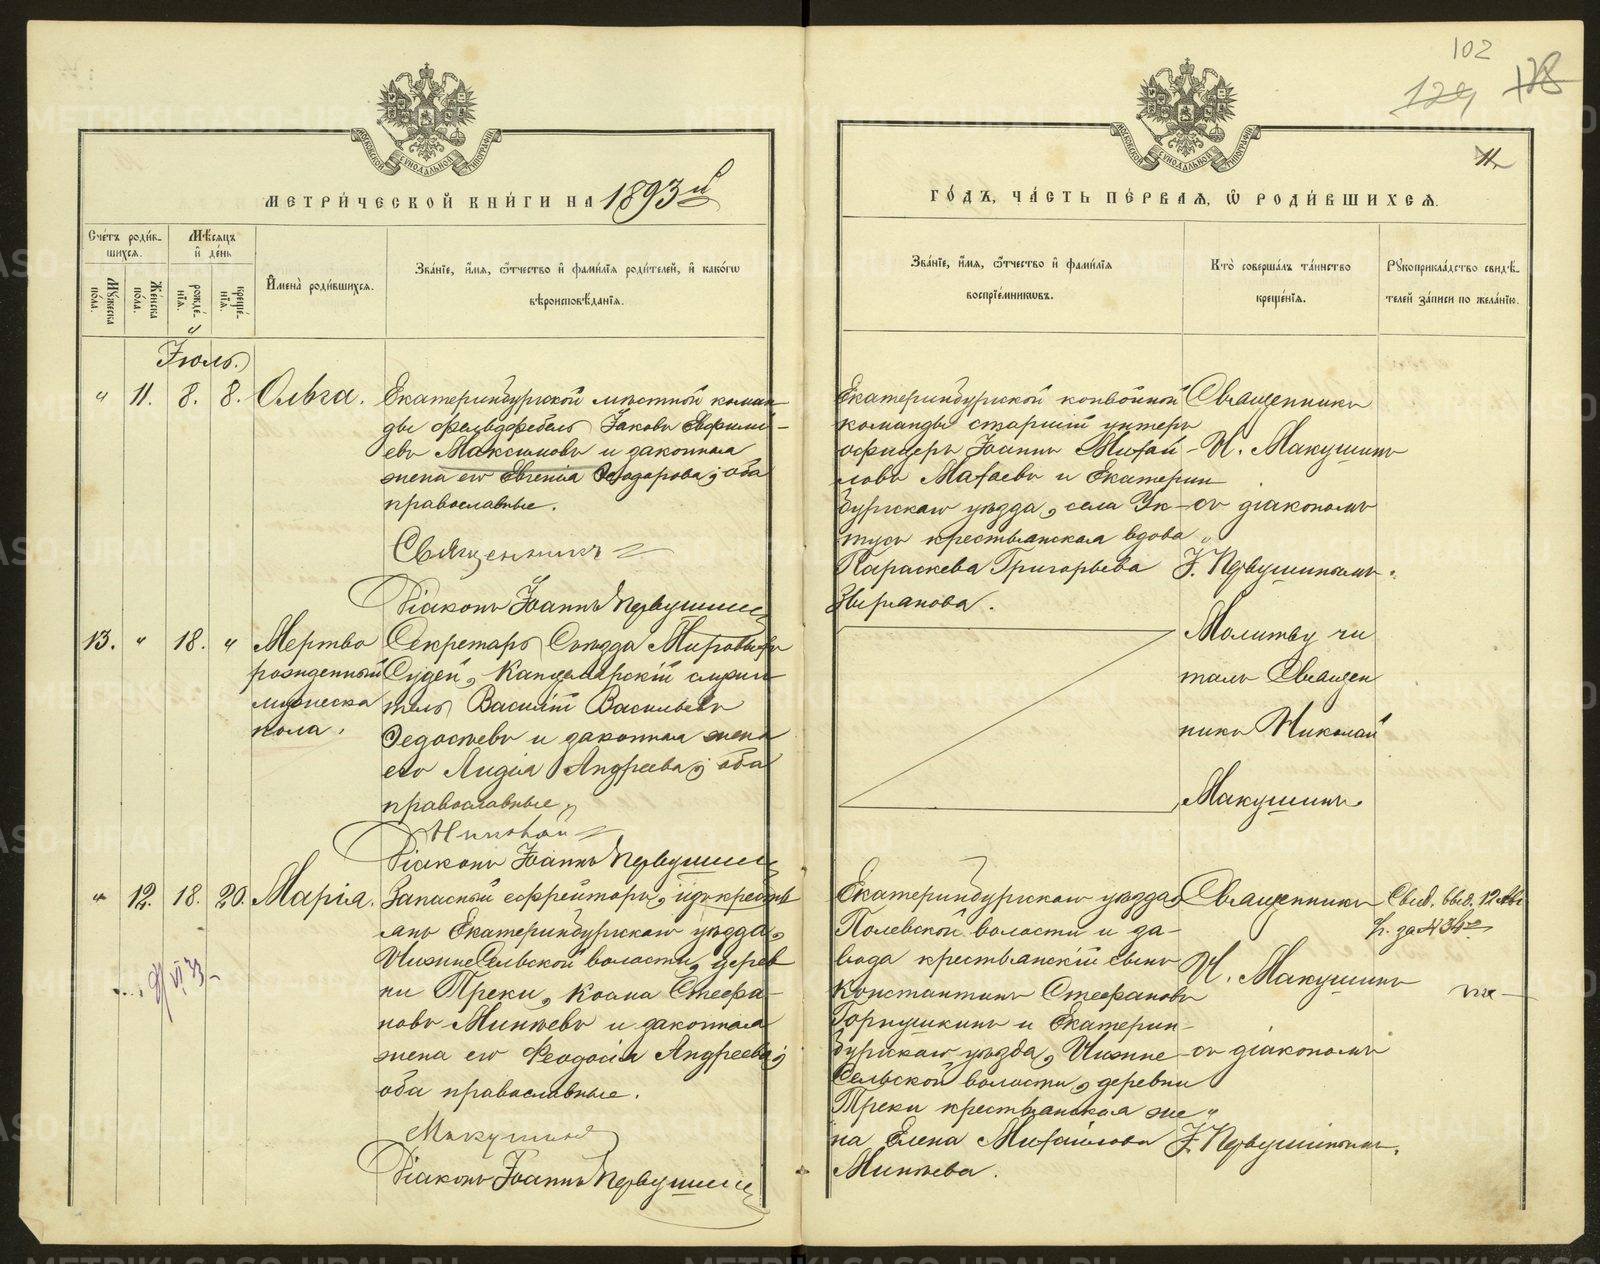 102
129 128
11.
МЕТРИ́ЧЕСКОЙ КНИ́ГИ НА 1893й
ГО́ДЪ, ЧА́СТЬ ПЕ́РВАЯ, Ѿ РОДИ́ВШИХСЯ.
Счетъ роди́вшихся.
Му́жеска по́ла.
Же́нска по́ла.
Мѣсяцъ и́ де́нь
рожде́нія.
креще́нія.
И҆мена̀ роди́вшихся.
Зва́ніе, и҆́мя, ѻ҆́тчество и҆ фами́лія роди́телей, и҆ како́гѡ
вѣроисповѣ́данія.
Зва́ніе, и҆́мя, ѻ҆́тчество и҆ фами́лія
воспріе́мникѡвъ.
Кто̀ соверша́лъ та́инство
креще́нія.
Рꙋкоприкла́дство свидѣ́-
телей за́писи по жела́нію.
Іюль.
" 11. 8. 8. Ольга.
Екатеринбургской мѣстной коман-
ды фельдфебель Іаковъ Евфимі-
евъ Максимовъ и законная
жена его Евгенія Ѳеодорова; оба
православные.
Священникъ
Діаконъ Іоаннъ Первушинъ
Екатеринбургской конвойной
команды старшій унтеръ
офицеръ Іоаннъ Михай-
ловъ Махаевъ и Екатерин
бургскаго уѣзда, села Ук-
тусъ крестьянская вдова
Параскева Григорьева
Звѣрянова.
Священникъ
Н. Макушинъ
съ діакономъ
І. Первушинымъ.
13. " 18. "
Мертво
рожденный
мужеска
пола.
Секретарь Съѣзда Мировыхъ
Судей, Канцелярскій служи
тель Василій Васильевъ
Ѳедосѣевъ и законная жена
его Лидія Андреева; оба
православные,
Николай
Діаконъ Іоаннъ Первушинъ
Молитву чи
талъ Священ
никъ Николай
Макушинъ.
" 12. 18. 20. Марія.
Запасный ефрейторъ, изъ кресть
янъ Екатеринбургскаго уѣзда,
НижнеСельской волости, дерев
ни Треки, Козма Стефа-
новъ Минѣевъ и законная
жена его Ѳеодосія Андреева;
оба православные.
Макушинъ
Діаконъ Іоаннъ Первушинъ
Екатеринбургскаго уѣзда
Полевской волости и за-
вода крестьянскій сынъ
Константинъ Стефановъ
Горнушкинъ и Екатерин-
бургскаго уѣзда, Нижне-
Сельской волости, деревни
Треки крестьянская же
на Елена Михайлова
Минѣева.
Священникъ
Н. Макушинъ
съ діакономъ
І. Первушинымъ.